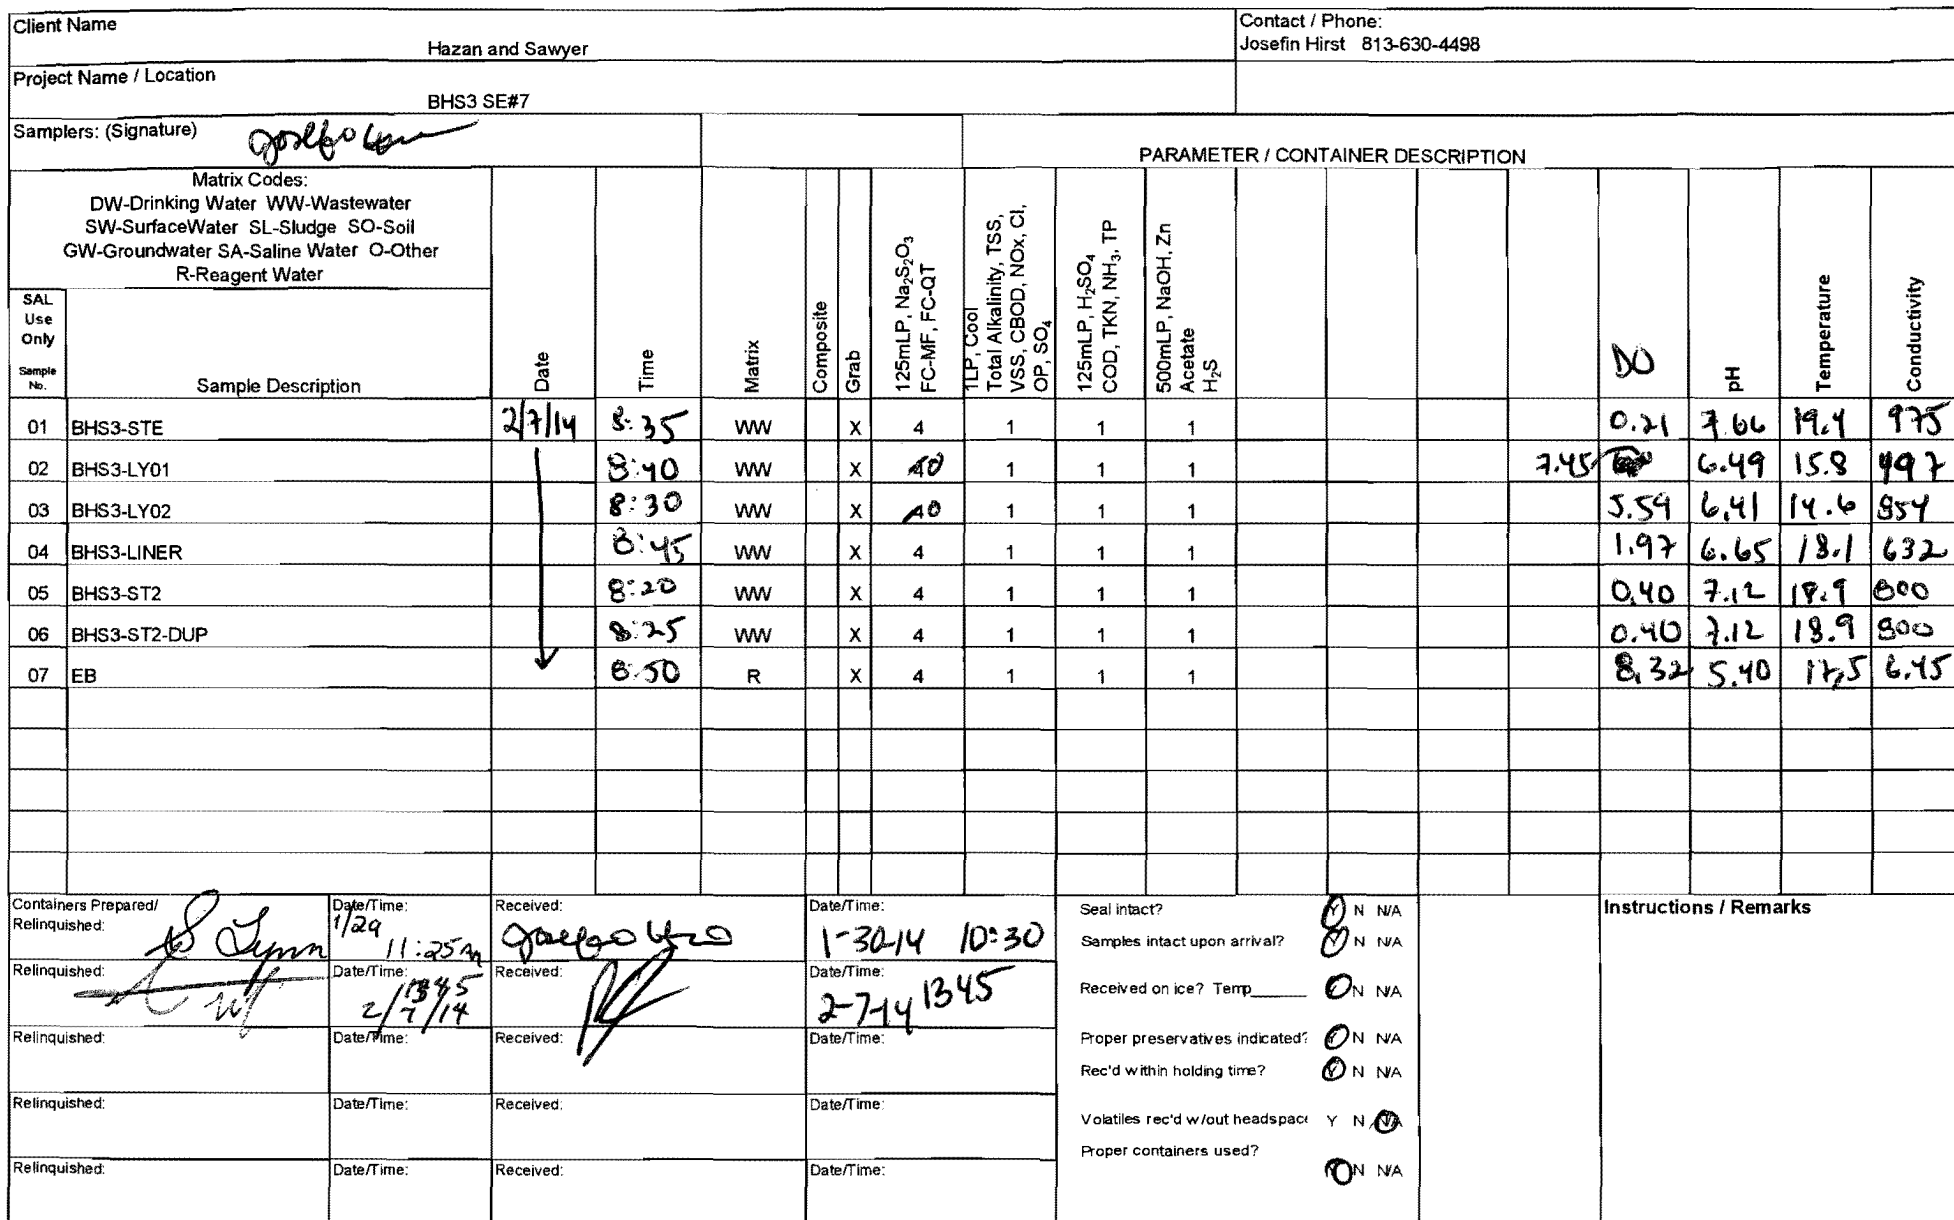 Client Name
Hazan and Sawyer
Contact / Phone:
Josefin Hirst 813-630-4498
Project Name / Location
BHS3 SE#7
Samplers: (Signature)
PARAMETER / CONTAINER DESCRIPTION
Matrix Codes:
DW-Drinking Water WW-Wastewater
SW-SurfaceWater SL-Sludge SO-Soil
GW-Groundwater SA-Saline Water O-Other
R-Reagent Water
SAL
Use
Only
Sample
No.
Sample Description
Date
Time
Matrix
Composite
Grab
125mLP, Na2S2O3
FC-MF, FC-QT
1LP, Cool
Total Alkalinity, TSS,
VSS, CBOD, NOx, Cl,
OP, SO4
125mLP, H2SO4
COD, TKN, NH3, TP
500mLP, NaOH, Zn
Acetate
H2S
DO
pH
Temperature
Conductivity
01 BHS3-STE 2/7/14 8:35 WW X 4 1 1 1 0.21 7.66 19.4 975
02 BHS3-LY01 8:40 WW X 0 1 1 1 7.45 6.49 15.8 497
03 BHS3-LY02 8:30 WW X 0 1 1 1 5.59 6.41 14.6 854
04 BHS3-LINER 8:45 WW X 4 1 1 1 1.97 6.65 18.1 632
05 BHS3-ST2 8:20 WW X 4 1 1 1 0.40 7.12 18.9 800
06 BHS3-ST2-DUP 8:25 WW X 4 1 1 1 0.40 7.12 18.9 800
07 EB 8:50 R X 4 1 1 1 8.32 5.40 17.5 6.45
Containers Prepared/
Relinquished:
S Lynn
Date/Time:
1/29
11:25am
Received:
Date/Time:
1-30-14 10:30
Seal intact? Y N N/A
Samples intact upon arrival? Y N N/A
Instructions / Remarks
Relinquished:
Date/Time:
1345
2/7/14
Received:
Date/Time:
2-7-14 1345
Received on ice? Temp______ Y N N/A
Relinquished:
Date/Time:
Received:
Date/Time:
Proper preservatives indicated? Y N N/A
Rec'd within holding time? Y N N/A
Relinquished:
Date/Time:
Received:
Date/Time:
Volatiles rec'd w/out headspace Y N N/A
Proper containers used?
Y N N/A
Relinquished:
Date/Time:
Received:
Date/Time: